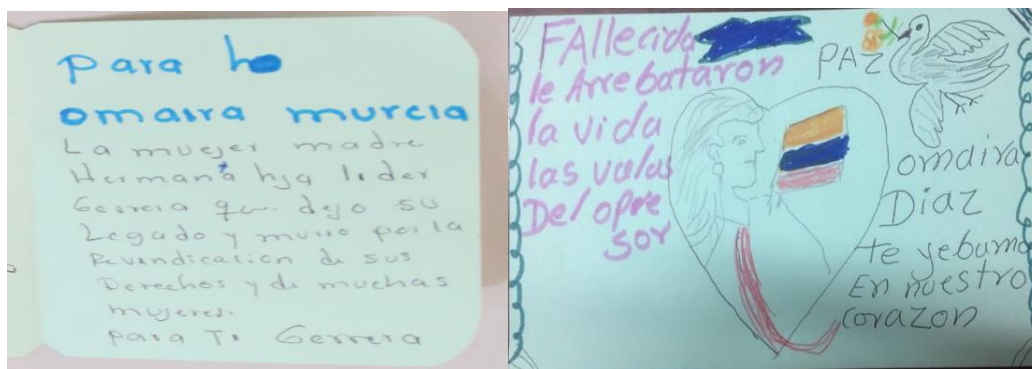 para
omaira murcia
La muejer madre
Hermana hja lider
Gerrera que dejo su
Legado y murio por la
Revindicacion de sus
Derechos y de muchas
mujeres.
para Ti Gerrera
FAllecida
le Arrebataron
la vida
las valas
Del opre
sor
PAZ
omaira
Diaz
te yebamo
En nuestro
corazon